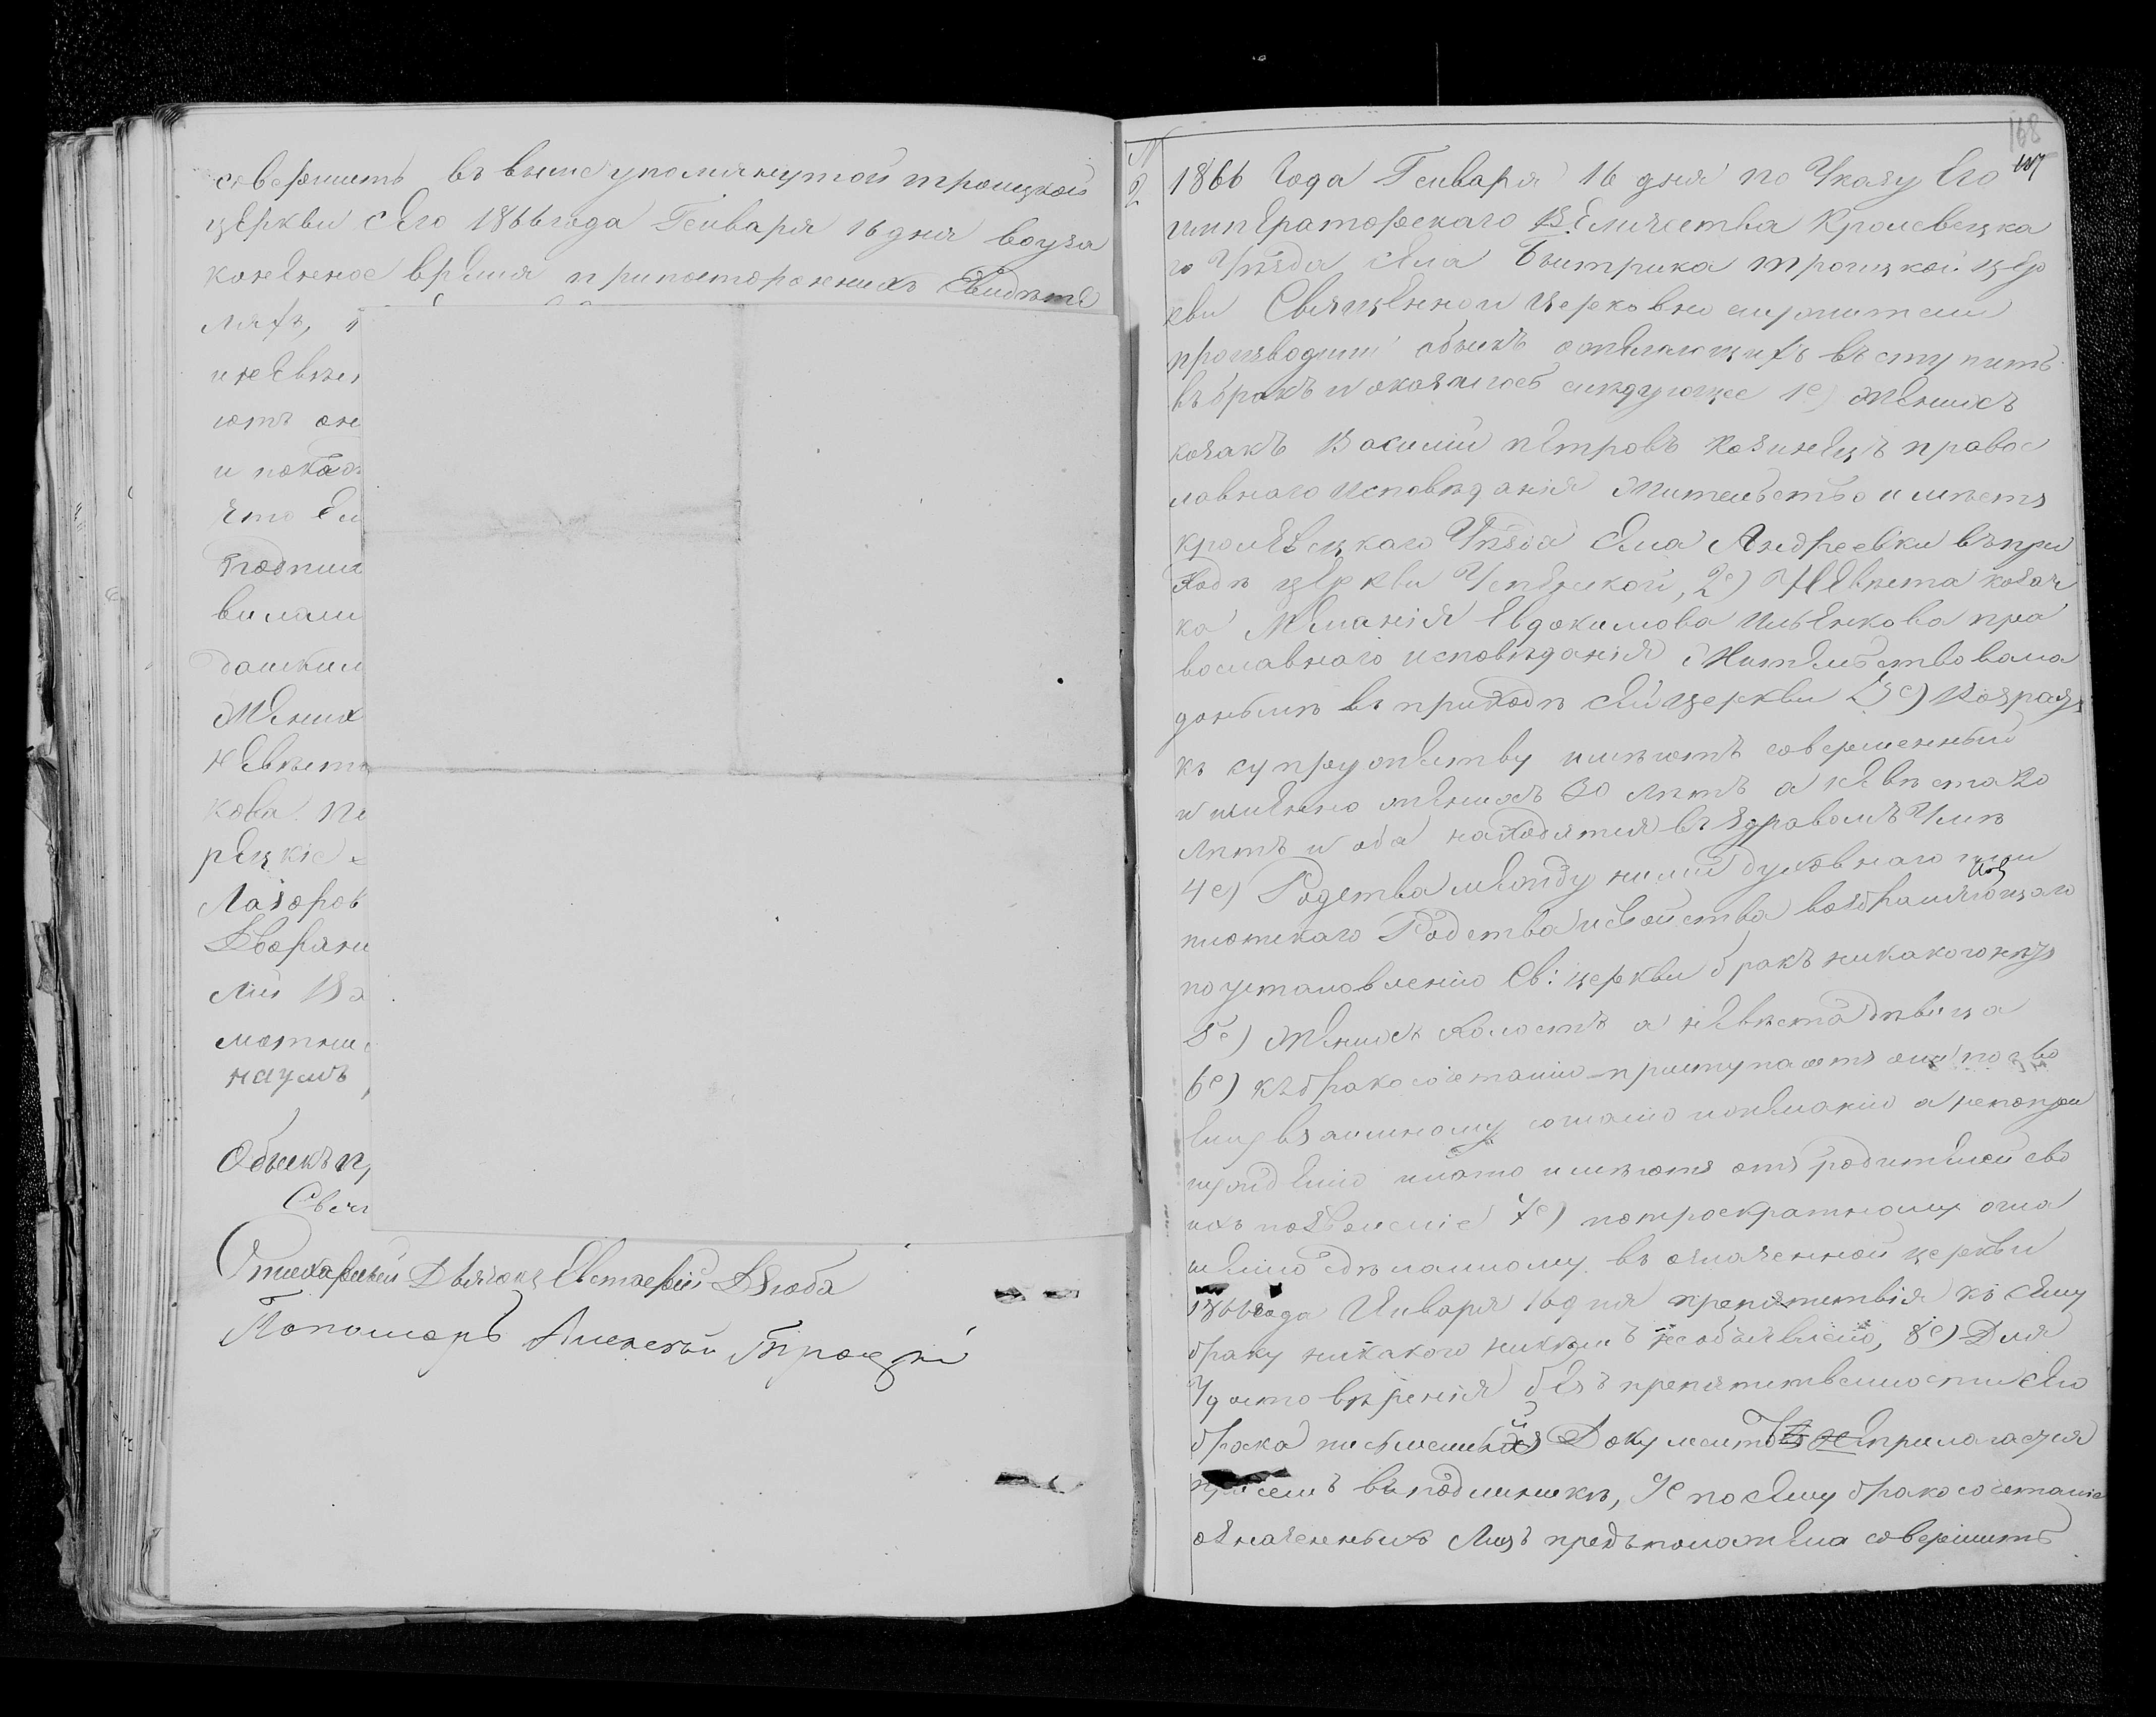 совершить въ вышеупомянутой троицкой
церкви сего 1866 года Генваря 16 дня воуза
коненное время припостороннихъ свидѣте
ляхъ,
иневѣс
ютъ он
и показ
что ем
Подпис
вилами
дошким
Жених
невѣст
кова. По
рецкіе
Лазоров
Дворяни
лій Ва
мотни
наумъ
Обыскъ п
Свящ
Стихарный Дьячокъ Евстафій Дзюба
Пономарь Алексѣй Троцкій
168
N
2
1866 Года Генваря 16 дня по Указу Его
императорскаго Величества Кролевецка
го Уѣзда села Быстрика троицкой цер
кви Священно и Церковно служители
производили обыскъ ожелающихъ вступить
въ бракъ и оказалось слѣдующее 1е) Женихъ
козакъ Василій петровъ Козинецъ правос
лавнаго исповѣданія Жительство имѣетъ
кролевецкаго Уѣзда села Андреевки въпри
ходѣ церкви Успенской, 2е) Невѣста козач
ка Меланія Евдокимова Ильенкова пра
вославнаго исповѣданія Жительствовала
донынѣ въ приходѣ сей церкви 3е) Возрастъ
къ супружеству имѣютъ совершенный
и именно женихъ 30 лѣтъ а невѣста 20
лѣтъ и оба находятся въ здравомъ Умѣ
4е) Родства между ними духовнаго или
плотскаго Родства исвойства возбраняющаго
по установленію Св: церкви бракъ никакого нѣтъ
5е) Женихъ холостъ а невѣста дѣвица
6е) къ бракосочетанію приступаютъ они по сво
ему взаимному согласію ижеланію а непопри
нужденію и на то имѣютъ отъ родителей сво
ихъ позволеніе 7е) потроекратному огла
шенію сдѣланному въ означенной церкви
1866 года Января 16 дня препятствія къ сему
браку никакого никѣмъ необъявлено, 8е) Для
Удостовѣренія безпрепятственности сего
брака письменный Документъ прилагается
при семъ въ подлинникѣ, И по сему бракосочетаніе
означенныхъ Лицъ предположено совершить